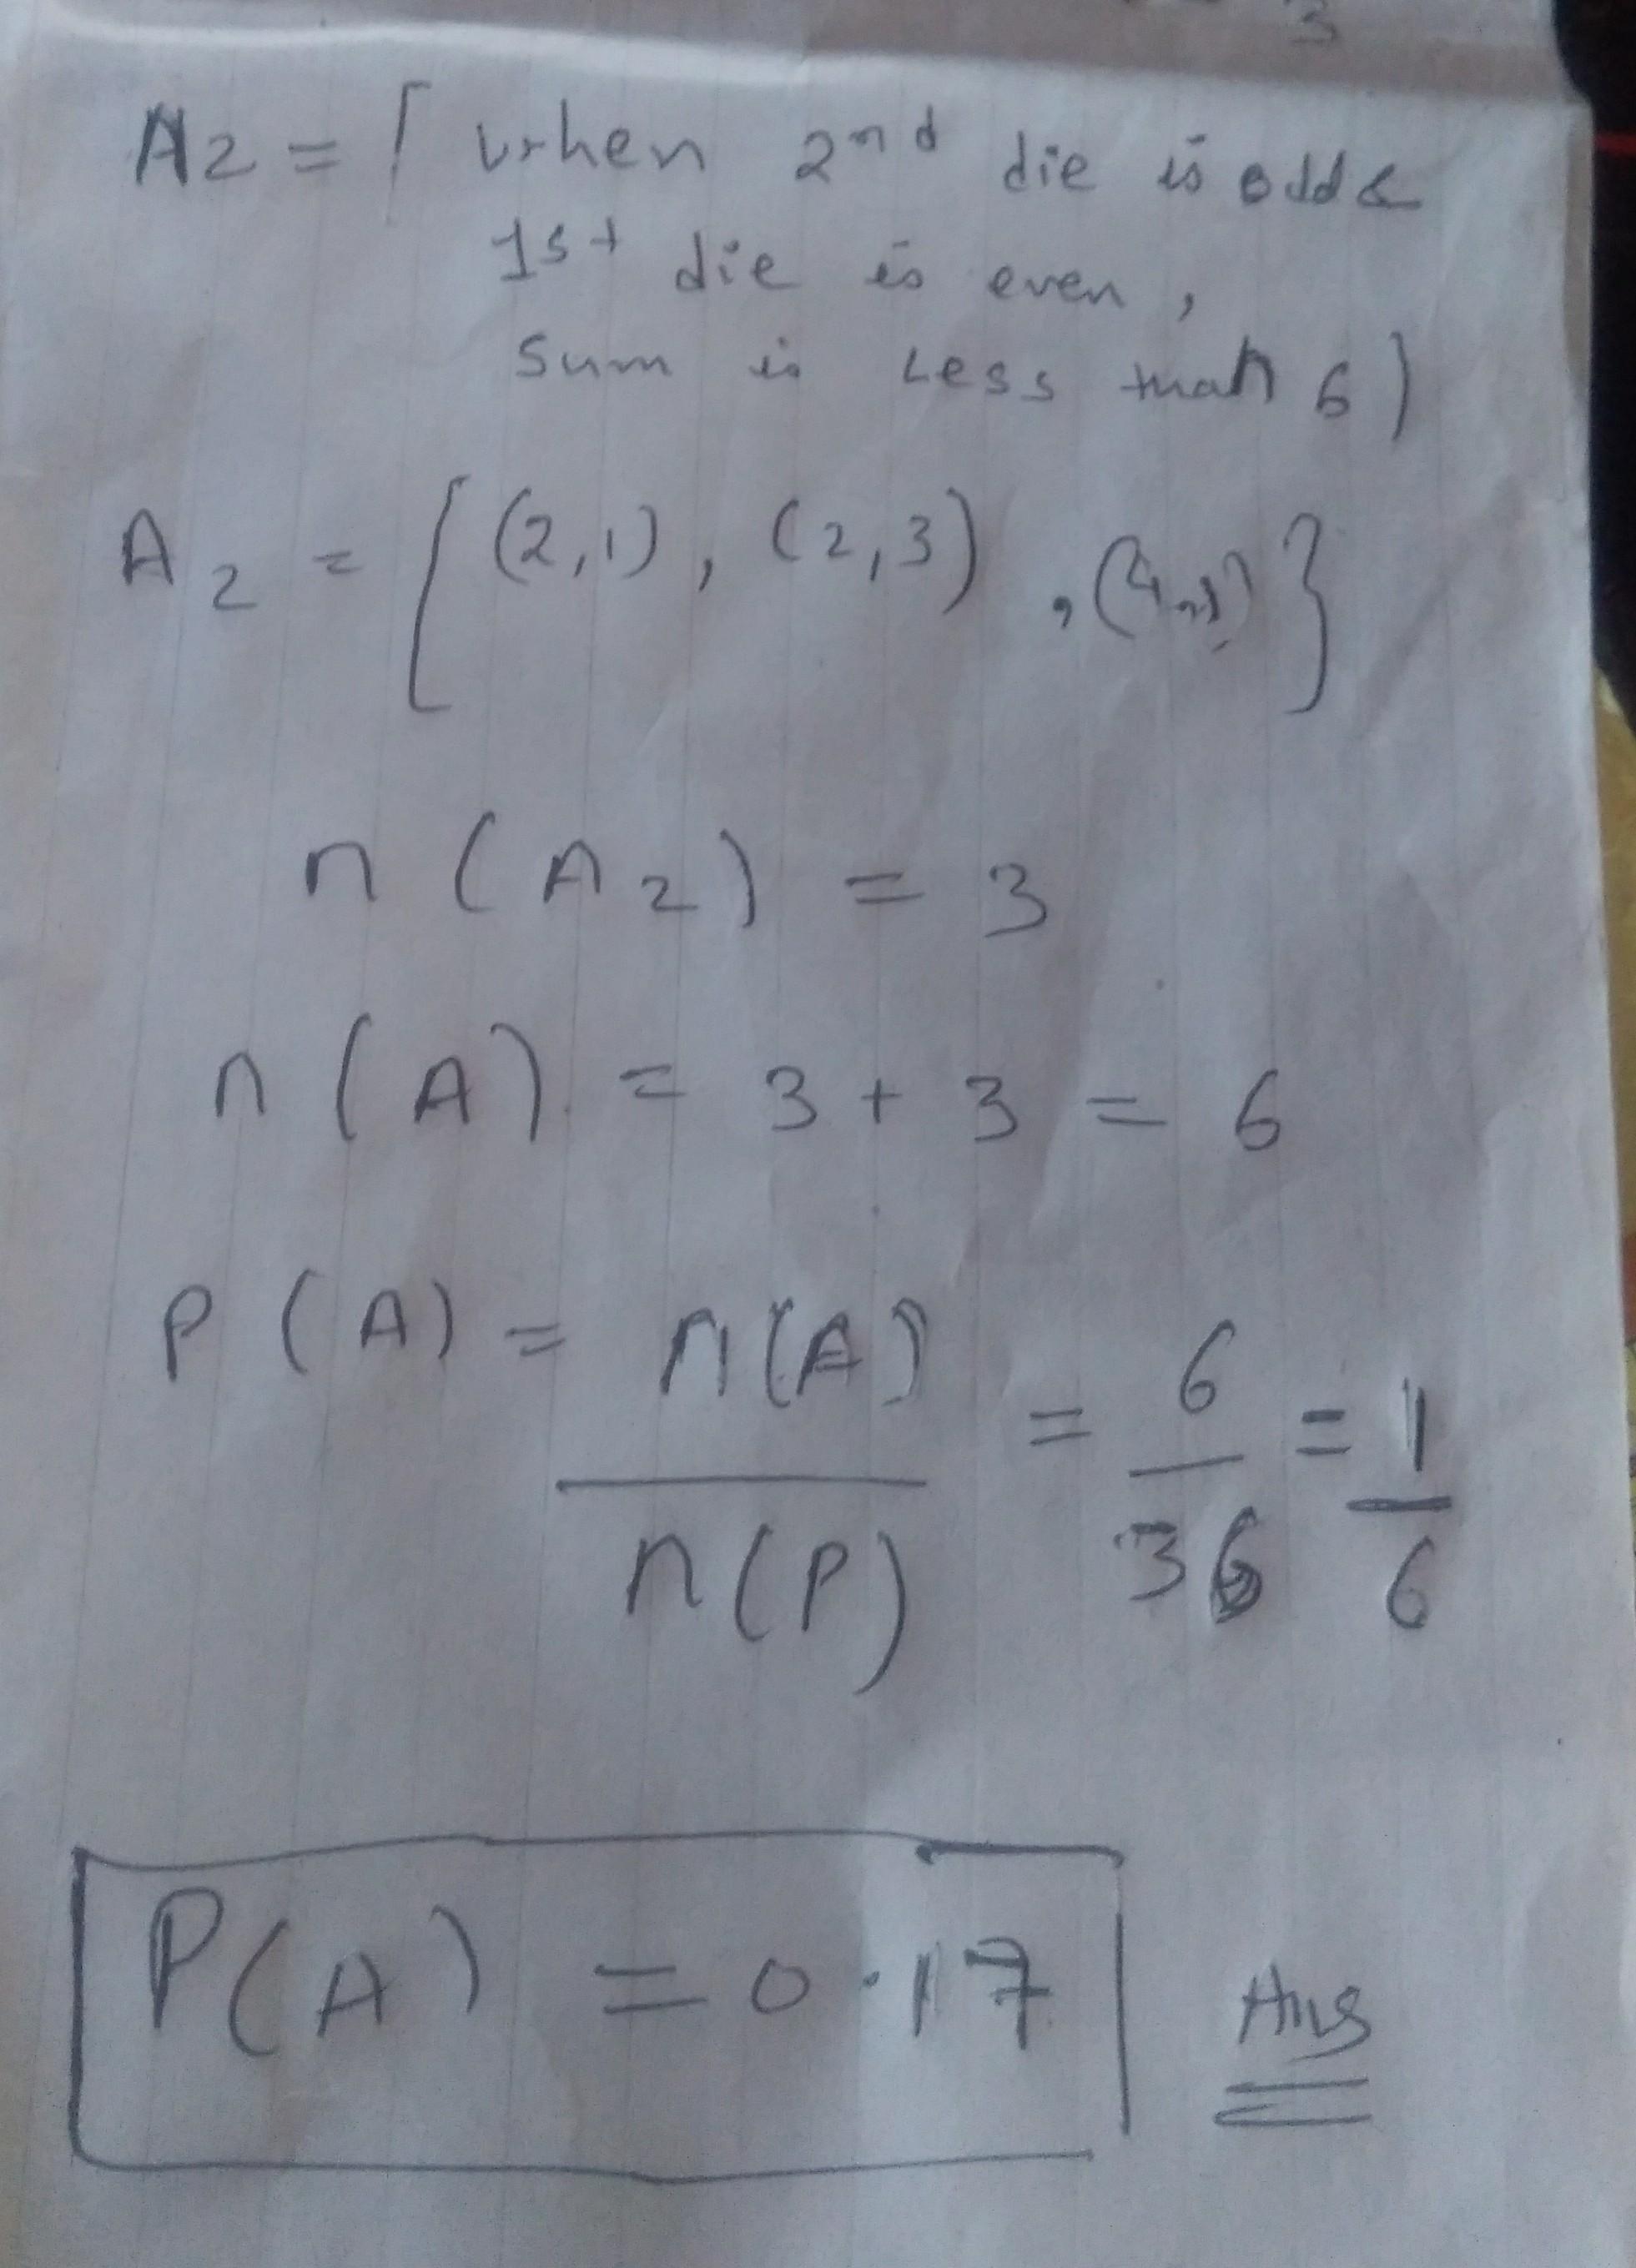 3
A2 = { when 2nd die is odd &
1st die is even,
sum is less than 6)
A2 = { (2,1), (2,3), (4,1) }
n (A2) = 3
n (A) = 3 + 3 = 6
P (A) = n(A) / n(P) = 6/36 = 1/6
P(A) = 0.17 Ans